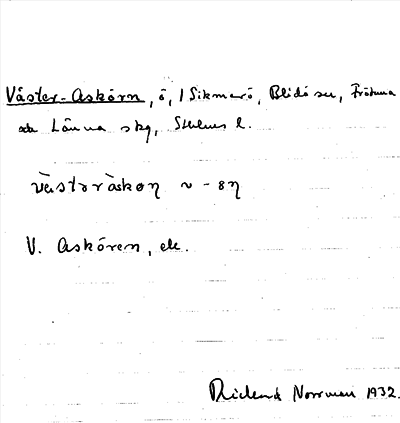 Väster-Askörn, ö, 1 Sikmarö, Blidö sn, Frötuna
och Länna skg, Sthlms l.
västəràskøn ~ -øn
V. Askören, ek.
Rickard Norrman 1932.